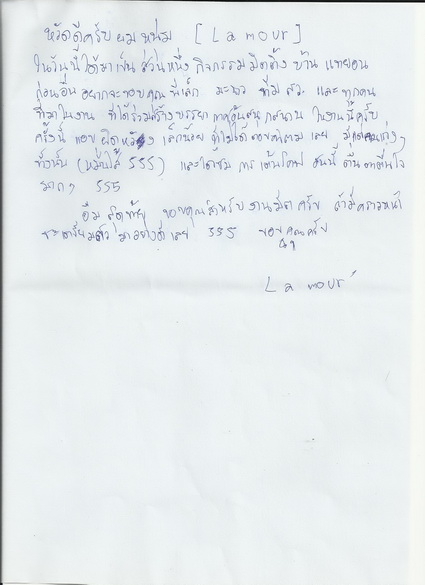 หวัดดีครับ ผม หนุ่ม [La mour]
ในวันนี้ได้มาเป็นส่วนหนึ่ง กิจกรรม มิตติ้ง บ้าน
ก่อนอื่น อยากจะขอบคุณ พี่เล็ก มะนาว ทีม และ ทุกคน
ที่มาในงาน ที่ได้ร่วมสร้างบรรยากาศ สนุกสนาน ในงานนี้ครับ
ครั้งนี้ แอบ ผิดหวัง เล็กน้อย ที่ไม่ได้ตอบคำถาม เลย มีแต่คนเก่งๆ
ทั้งนั้น (หมั่นไส้ 555) และได้ชม การเต้นโคฟ อันนี้ ตื่นตาตื่นใจ
มากๆ 555
อืม สุดท้าย ขอบคุณสำหรับงานมีต ครับ ถ้ามีคราวหน้า
จะเตรียมตัว มาอย่างดีเลย 555 ขอบคุณครับ
La mour